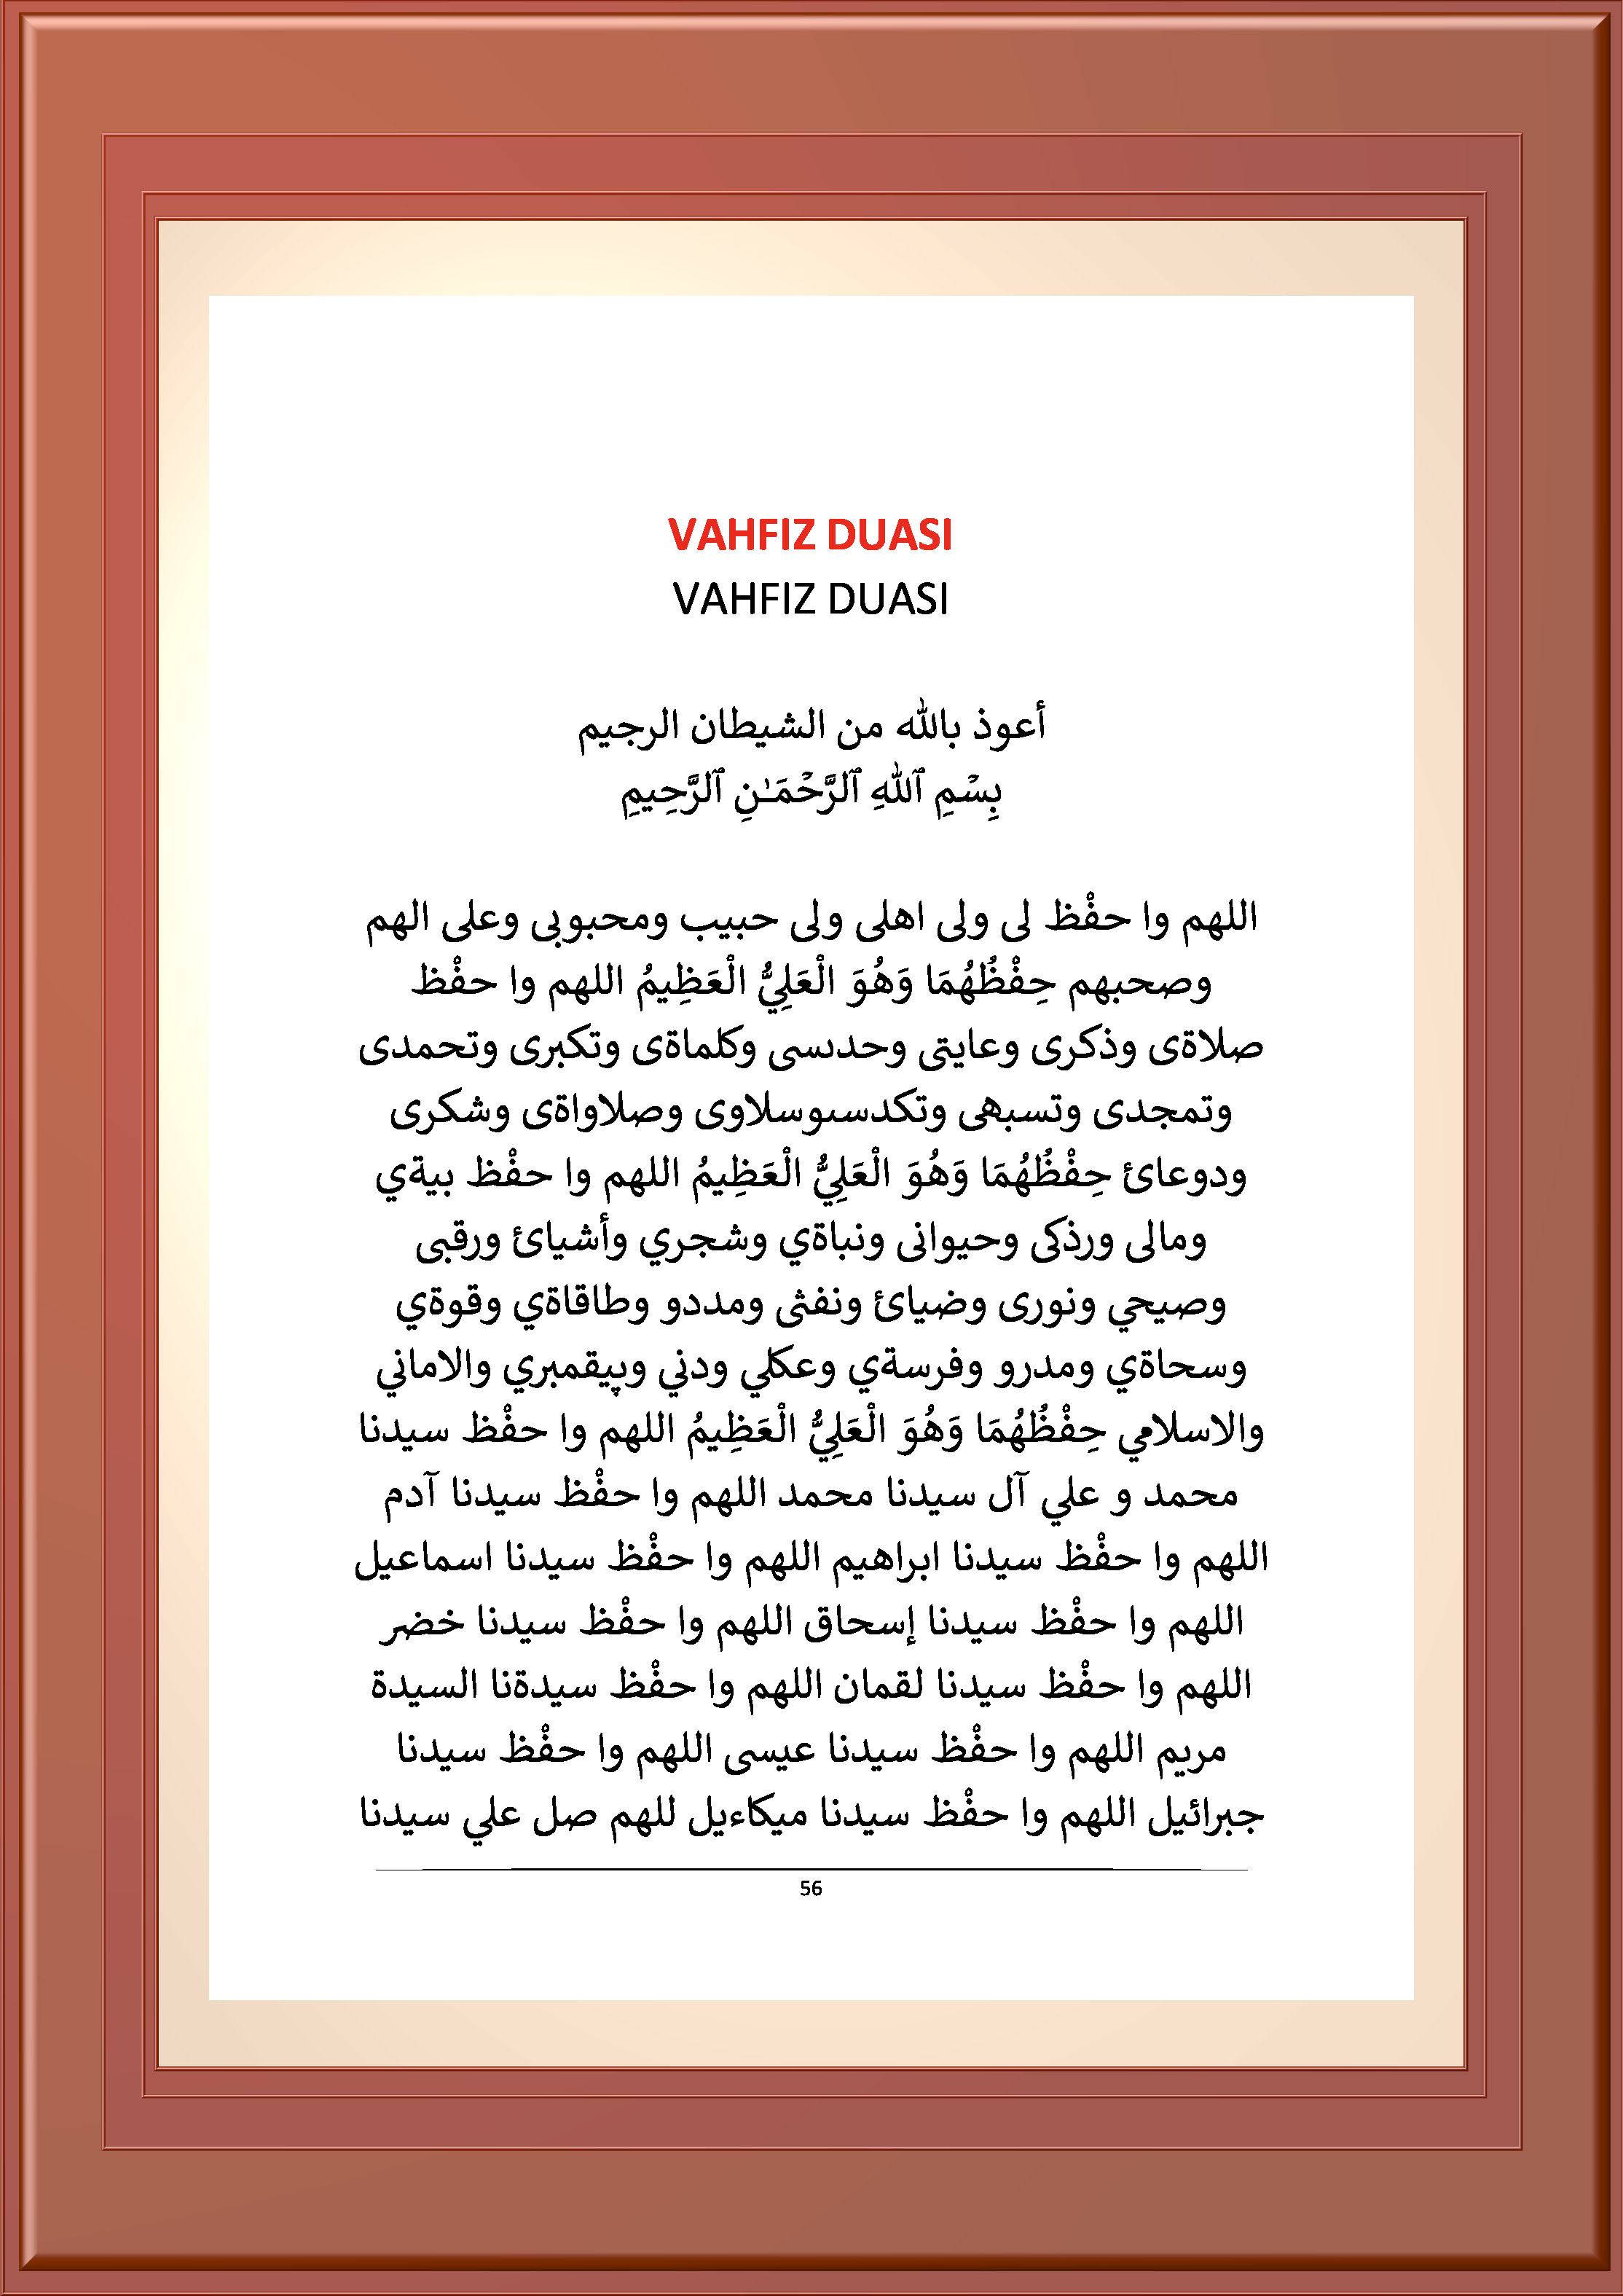 VAHFIZ DUASI
VAHFIZ DUASI
أعوذ بالله من الشيطان الرجيم
بِسۡمِ ٱللهِ ٱلرَّحۡمَـٰنِ ٱلرَّحِيمِ
اللهم وا حفْظ لى ولى اهلى ولى حبيب ومحبوبى وعلى الهم
وصحبهم حِفْظُهُمَا وَهُوَ الْعَلِيُّ الْعَظِيمُ اللهم وا حفْظ
صلاةى وذكرى وعايتى وحدىسى وكلماةى وتكبرى وتحمدى
وتمجدى وتسبهى وتكدسىوسلاوى وصلاواةى وشكرى
ودوعائ حِفْظُهُمَا وَهُوَ الْعَلِيُّ الْعَظِيمُ اللهم وا حفْظ بيةي
ومالى ورذكى وحيوانى ونباةي وشجري وأشيائ ورقبى
وصيحي ونورى وضيائ ونفثى ومددو وطاقاةي وقوةي
وسحاةي ومدرو وفرسةي وعكلي ودني وپيقمبري والاماني
والاسلامي حِفْظُهُمَا وَهُوَ الْعَلِيُّ الْعَظِيمُ اللهم وا حفْظ سيدنا
محمد و علي آل سيدنا محمد اللهم وا حفْظ سيدنا آدم
اللهم وا حفْظ سيدنا ابراهيم اللهم وا حفْظ سيدنا اسماعيل
اللهم وا حفْظ سيدنا إسحاق اللهم وا حفْظ سيدنا خضر
اللهم وا حفْظ سيدنا لقمان اللهم وا حفْظ سيدةنا السيدة
مريم اللهم وا حفْظ سيدنا عيسى اللهم وا حفْظ سيدنا
جبرائيل اللهم وا حفْظ سيدنا ميكاءيل للهم صل علي سيدنا
56